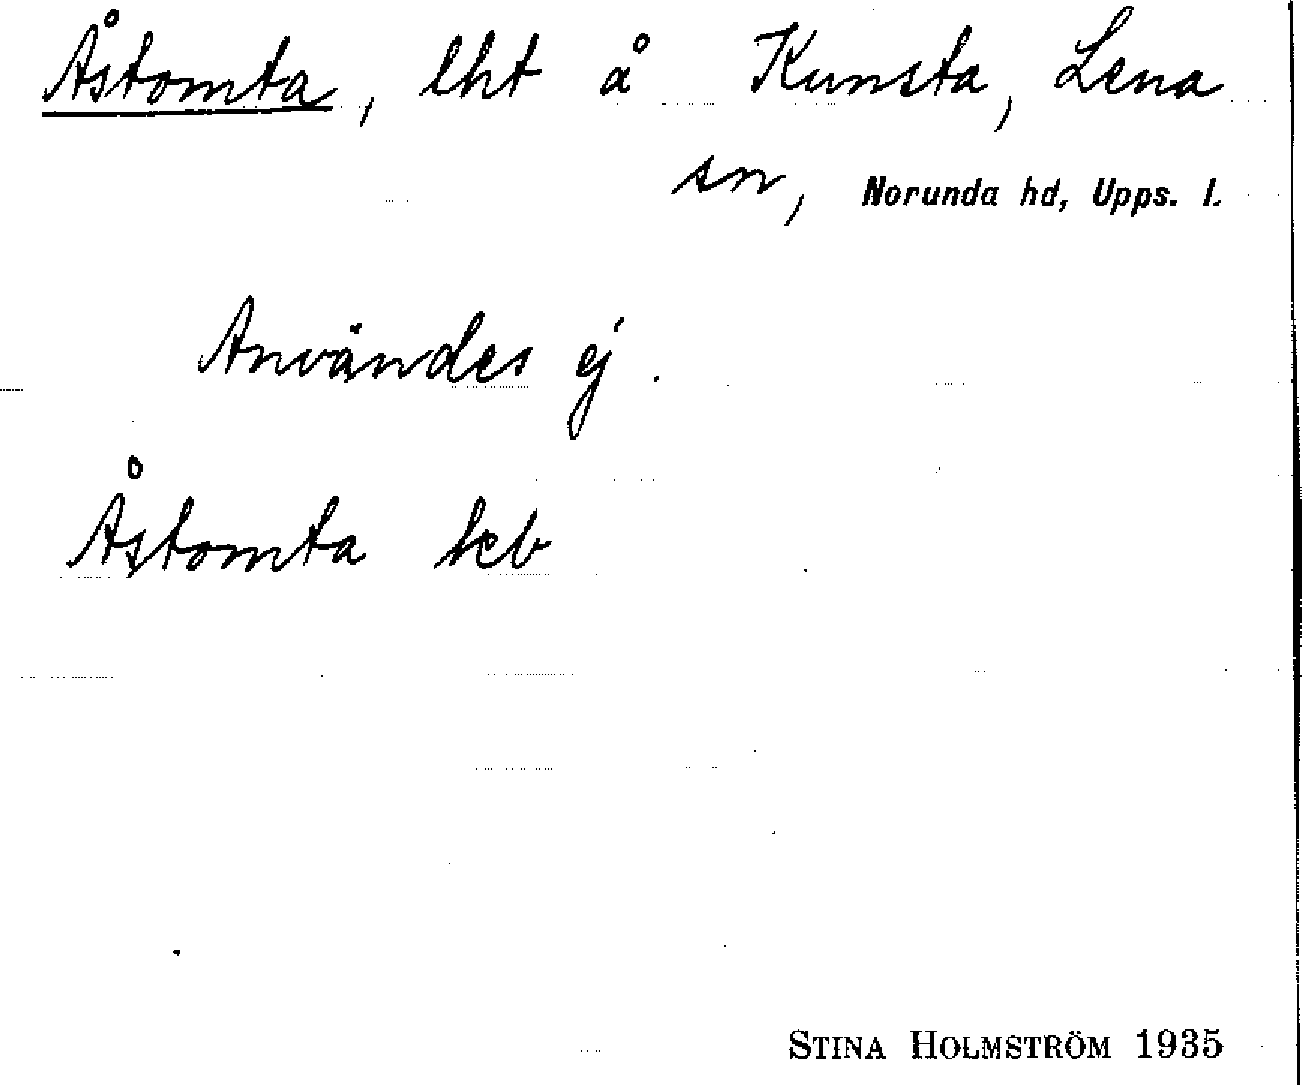 Åstomta, lht å Kunsta, Lena
sn, Norunda hd, Upps. l.
Användes ej.
Åstomta keb
STINA HOLMSTRÖM 1935